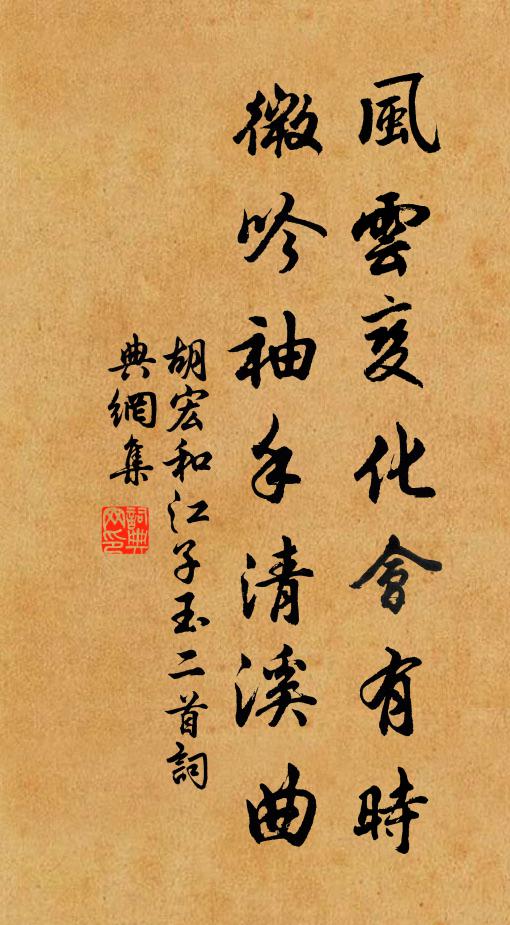 風雲変化會有時
微吟袖手清溪曲
胡宏和江子玉二首詞
典網集
詞典網印